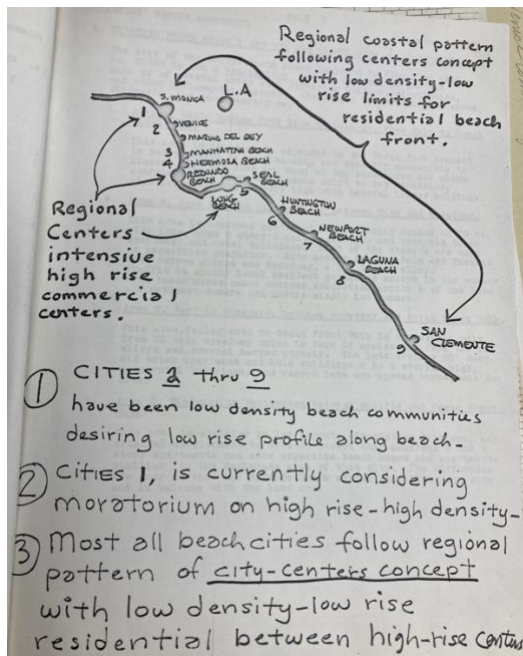 Regional coastal pattern
following centers concept
with low density-low
rise limits for
residential beach
front.
L.A
S. MONICA
1
2
VENICE
MARINA DEL REY
3 MANHATTAN BEACH
4 HERMOSA BEACH
REDONDO
BEACH
SEAL
BEACH
5
LONG
BEACH
HUNTINGTON
BEACH
6
NEWPORT
BEACH
7
LAGUNA
BEACH
8
SAN
CLEMENTE
9
Regional
Centers
intensive
high rise
commercial
centers.
1 CITIES 2 thru 9
have been low density beach communities
desiring low rise profile along beach-
2 Cities 1, is currently considering
moratorium on high rise-high density-
3 Most all beach cities follow regional
pattern of city-centers concept
with low density-low rise
residential between high-rise centers